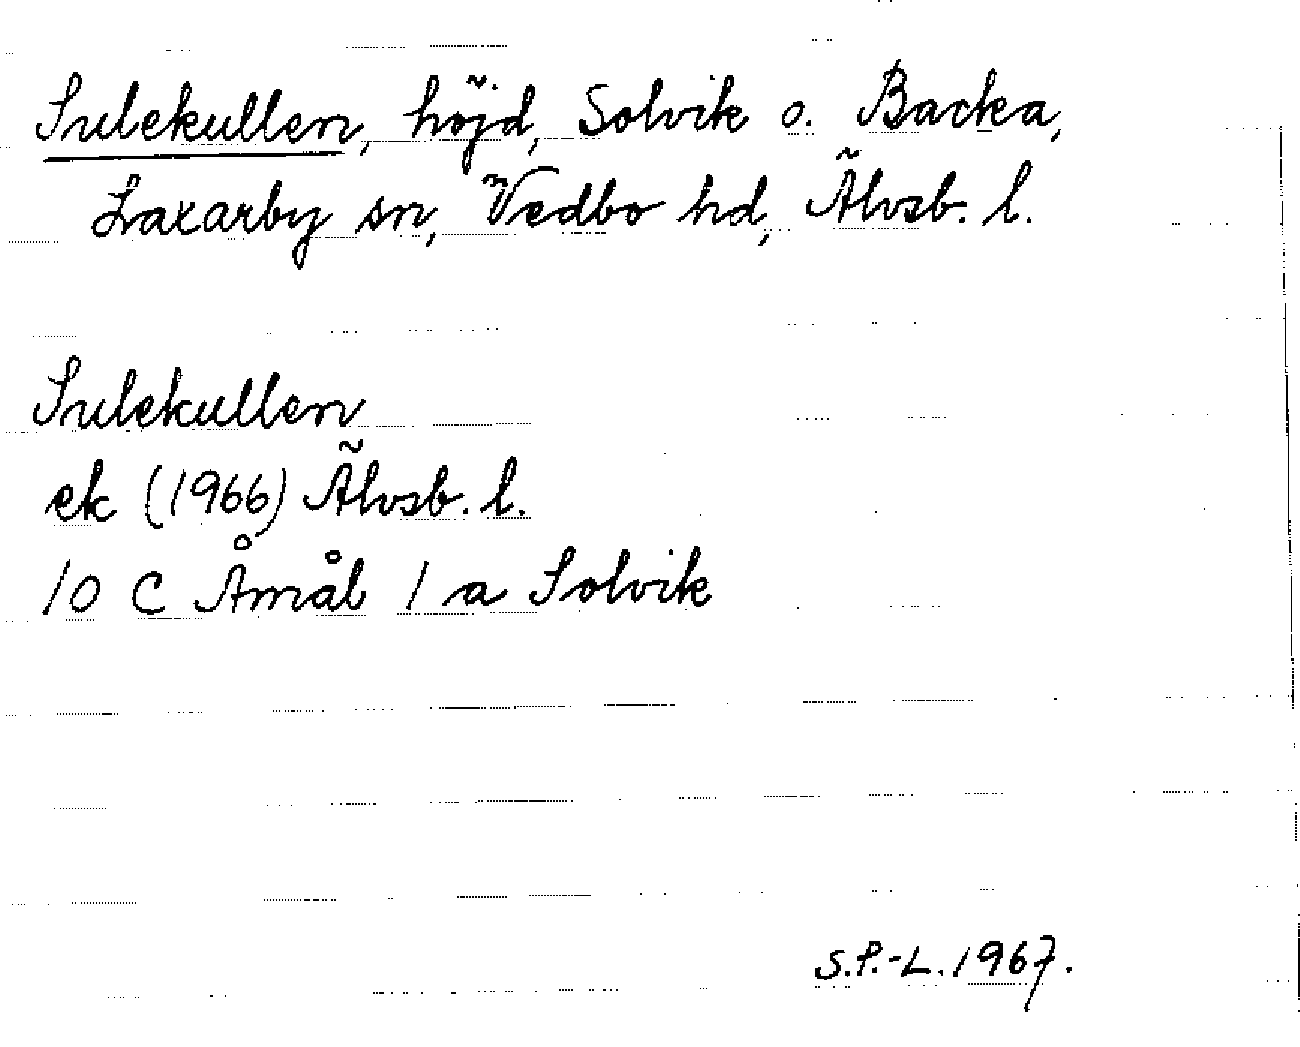 Sulekullen, höjd, Solvik o. Backa,
Laxarby sn, Vedbo hd, Älvsb. l.
Sulekullen
ek (1966) Älvsb. l.
10 C Åmål 1 a Solvik
S.P.-L. 1967.